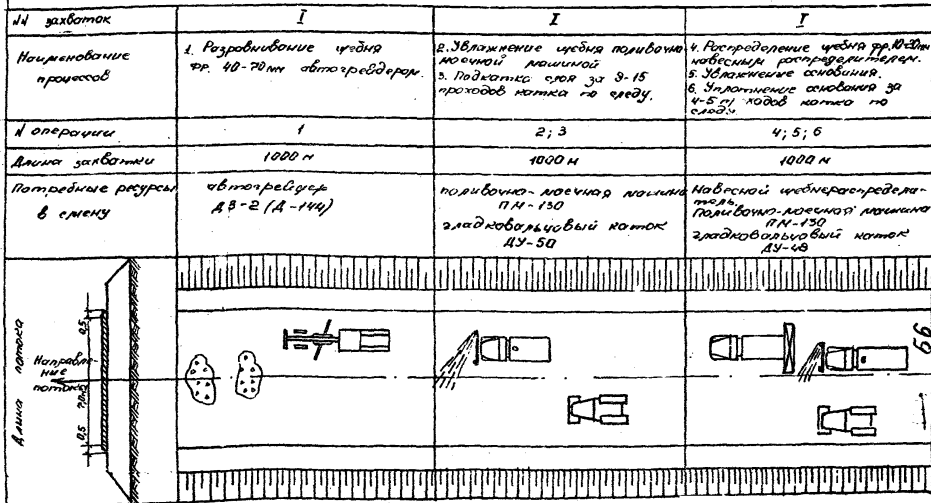 NN захваток
I
I
I
Наименование
процессов
1. Разравнивание щебня
фр. 40-70мм автогрейдером.
2. Увлажнение щебня поливочно
моечной машиной
3. Подкатка слоя за 9-15
проходов катка по следу.
4. Распределение щебня фр. 10-20мм
навесным распределителем.
5. Увлажнение основания.
6. Уплотнение основания за
4-5 п/ходов катка по
следу
N операции
1
2; 3
4; 5; 6
Длина захватки
1000 м
1000 м
1000 м
Потребные ресурсы
в смену
автогрейдер
ДЗ-2 (Д-144)
поливочно-моечная машина
ПМ-130
гладковальцовый каток
ДУ-50
Навесной щебнераспредели-
тель
Поливочно-моечная машина
ПМ-130
гладковальцовый каток
ДУ-49
Длина потока
Направле-
ние
потока
0,5
7,0м
0,5
66